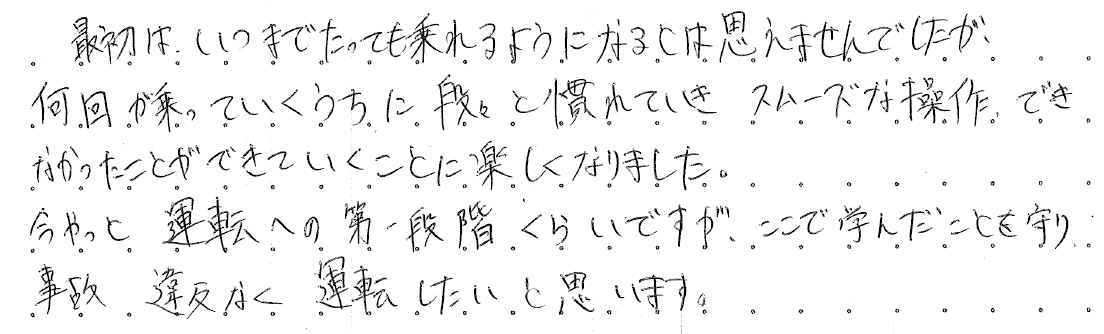 最初は、いつまでたっても乗れるようになるとは思えませんでしたが、
何回か乗っていくうちに段々と慣れていき スムーズな操作、でき
なかったことができていくことに楽しくなりました。
今やっと運転への第一段階くらいですが、ここで学んだことを守り
事故 違反なく 運転したいと思います。